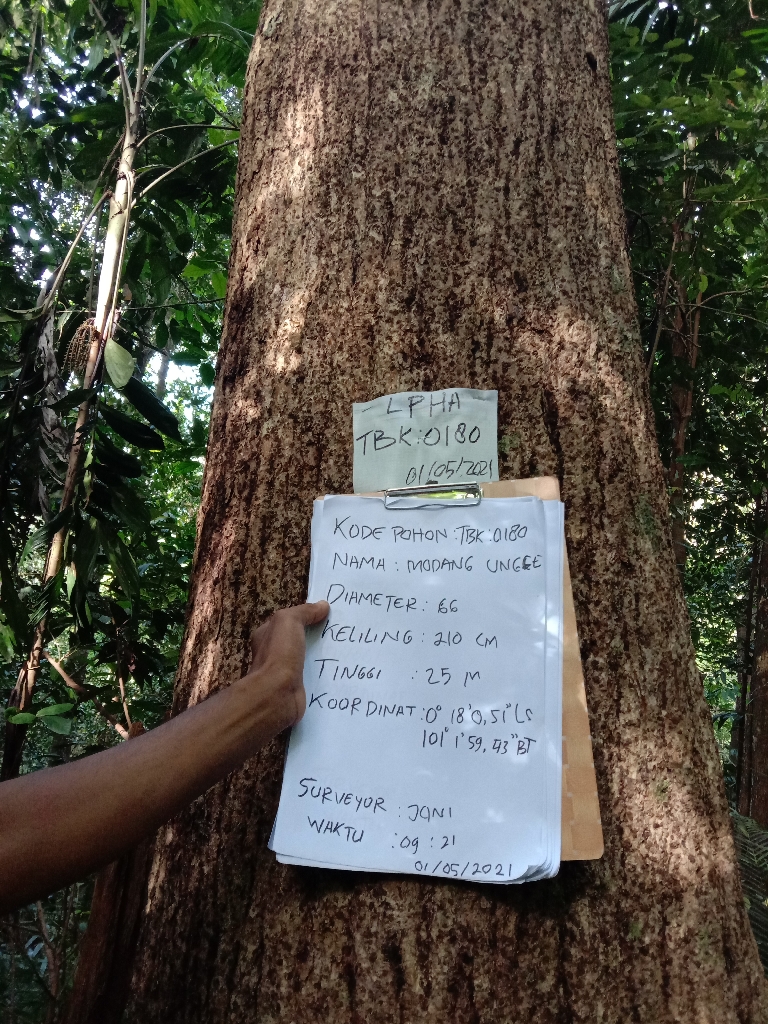 LPHA
TBK:0180
01/05/2021
KODE POHON : TBK:0180
NAMA : MODANG UNGEE
DIAMETER : 66
KELILING : 210 CM
TINGGI : 25 M
KOORDINAT : 0° 18' 0,51" LS
101° 1' 59,43" BT
SURVEYOR : JONI
WAKTU : 09 : 21
01/05/2021